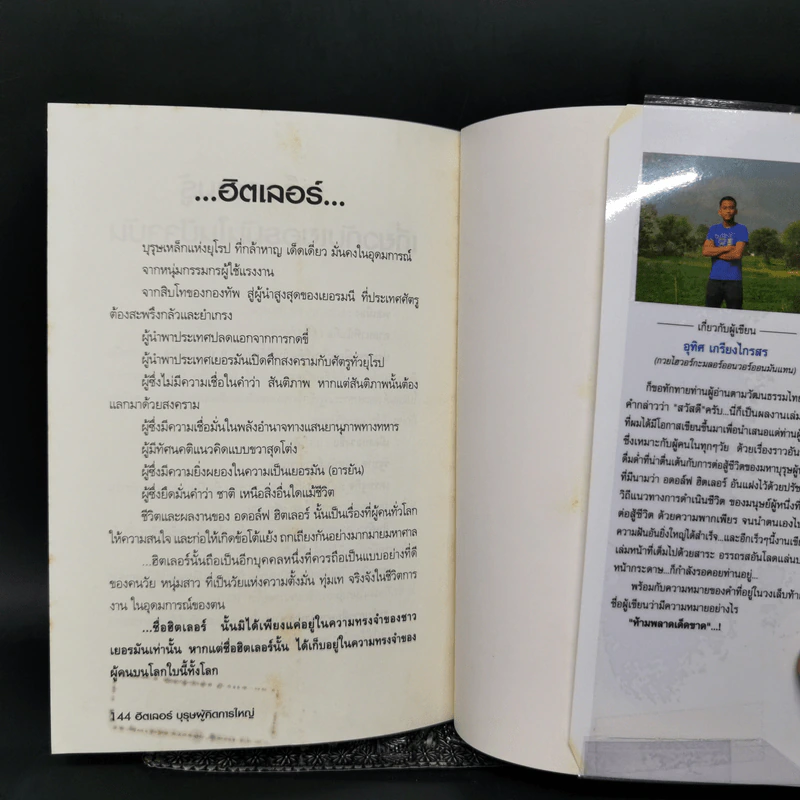 ...ฮิตเลอร์...
บุรุษเหล็กแห่งยุโรป ที่กล้าหาญ เด็ดเดี่ยว มั่นคงในอุดมการณ์
จากหนุ่มกรรมกรผู้ใช้แรงงาน
จากสิบโทของกองทัพ สู่ผู้นำสูงสุดของเยอรมนี ที่ประเทศศัตรู
ต้องสะพรึงกลัวและยำเกรง
ผู้นำพาประเทศปลดแอกจากการกดขี่
ผู้นำพาประเทศเยอรมันเปิดศึกสงครามกับศัตรูทั่วยุโรป
ผู้ซึ่งไม่มีความเชื่อในคำว่า สันติภาพ หากแต่สันติภาพนั้นต้อง
แลกมาด้วยสงคราม
ผู้ซึ่งมีความเชื่อมั่นในพลังอำนาจทางแสนยานุภาพทางทหาร
ผู้มีทัศนคติแนวคิดแบบขวาสุดโต่ง
ผู้ซึ่งมีความยิ่งผยองในความเป็นเยอรมัน (อารยัน)
ผู้ซึ่งยึดมั่นคำว่า ชาติ เหนือสิ่งอื่นใดแม้ชีวิต
ชีวิตและผลงานของ อดอล์ฟ ฮิตเลอร์ นั้นเป็นเรื่องที่ผู้คนทั่วโลก
ให้ความสนใจ และก่อให้เกิดข้อโต้แย้ง ถกเถียงกันอย่างมากมายมหาศาล
...ฮิตเลอร์นั้นถือเป็นอีกบุคคลหนึ่งที่ควรถือเป็นแบบอย่างที่ดี
ของคนวัย หนุ่มสาว ที่เป็นวัยแห่งความตั้งมั่น ทุ่มเท จริงจังในชีวิตการ
งาน ในอุดมการณ์ของตน
...ชื่อฮิตเลอร์ นั้นมิได้เพียงแค่อยู่ในความทรงจำของชาว
เยอรมันเท่านั้น หากแต่ชื่อฮิตเลอร์นั้น ได้เก็บอยู่ในความทรงจำของ
ผู้คนบนโลกใบนี้ทั้งโลก
144 ฮิตเลอร์ บุรุษผู้คิดการใหญ่
เกี่ยวกับผู้เขียน
อุทิศ เกรียงไกรสร
(กวยไฮวอร์กะมลอร์ออนวอร์ออนมันแทน)
ก็ขอทักทายท่านผู้อ่านตามวัฒนธรรมไทย
คำกล่าวว่า "สวัสดี"ครับ...นี่ก็เป็นผลงานเล่ม
ที่ผมได้มีโอกาสเขียนขึ้นมาเพื่อนำเสนอแด่ท่านผู้
ซึ่งเหมาะกับผู้คนในทุกๆวัย ด้วยเรื่องราวอัน
ดื่มด่ำที่น่าตื่นเต้นกับการต่อสู้ชีวิตของมหาบุรุษผู้
ที่มีนามว่า อดอล์ฟ ฮิตเลอร์ อันแฝงไว้ด้วยปรัช
วิถีแนวทางการดำเนินชีวิต ของมนุษย์ผู้หนึ่งที่
ต่อสู้ชีวิต ด้วยความพากเพียร จนนำตนเองไป
ความฝันอันยิ่งใหญ่ได้สำเร็จ...และอีกเร็วๆนี้งานเขีย
เล่มหน้าที่เต็มไปด้วยสาระ อรรถรสอันโลดแล่นบ
หน้ากระดาษ...ก็กำลังรอคอยท่านอยู่...
พร้อมกับความหมายของคำที่อยู่ในวงเล็บท้า
ชื่อผู้เขียนว่ามีความหมายอย่างไร
"ห้ามพลาดเด็ดขาด"...!